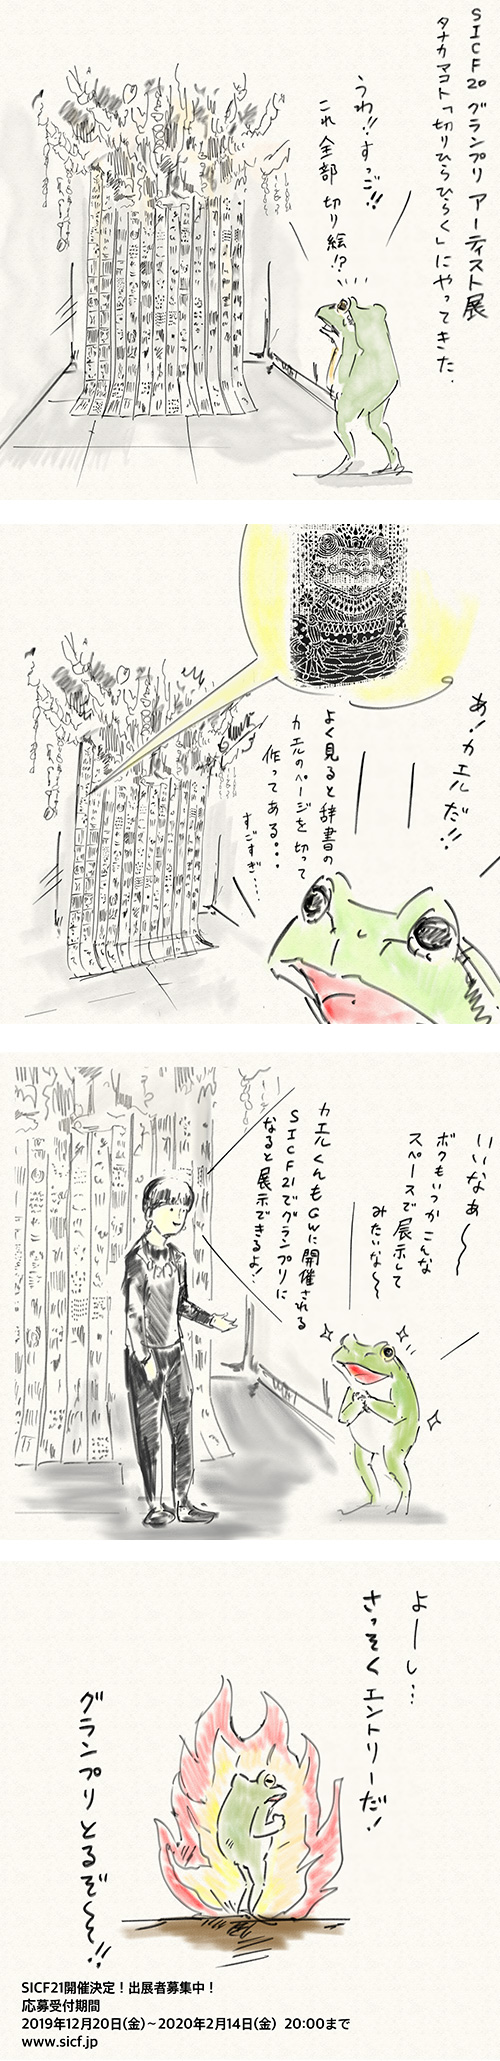 SICF20 グランプリ アーティスト展
タナカマコト「切りひらひらく」にやってきた.
うわ!!すっご!!
これ全部切り絵!?
あ!カエルだ!!
よく見ると辞書の
カエルのページを切って
作ってある。。。
すごすぎ…
いいなぁ〜〜
ボクもいつかこんな
スペースで展示して
みたいな〜〜
カエルくんもGWに開催される
SICF21でグランプリに
なると展示できるよ!
よーし…
さっそくエントリーだ!
グランプリとるぞ〜〜!!
SICF21開催決定！出展者募集中！
応募受付期間
2019年12月20日(金)～2020年2月14日(金) 20:00まで
www.sicf.jp